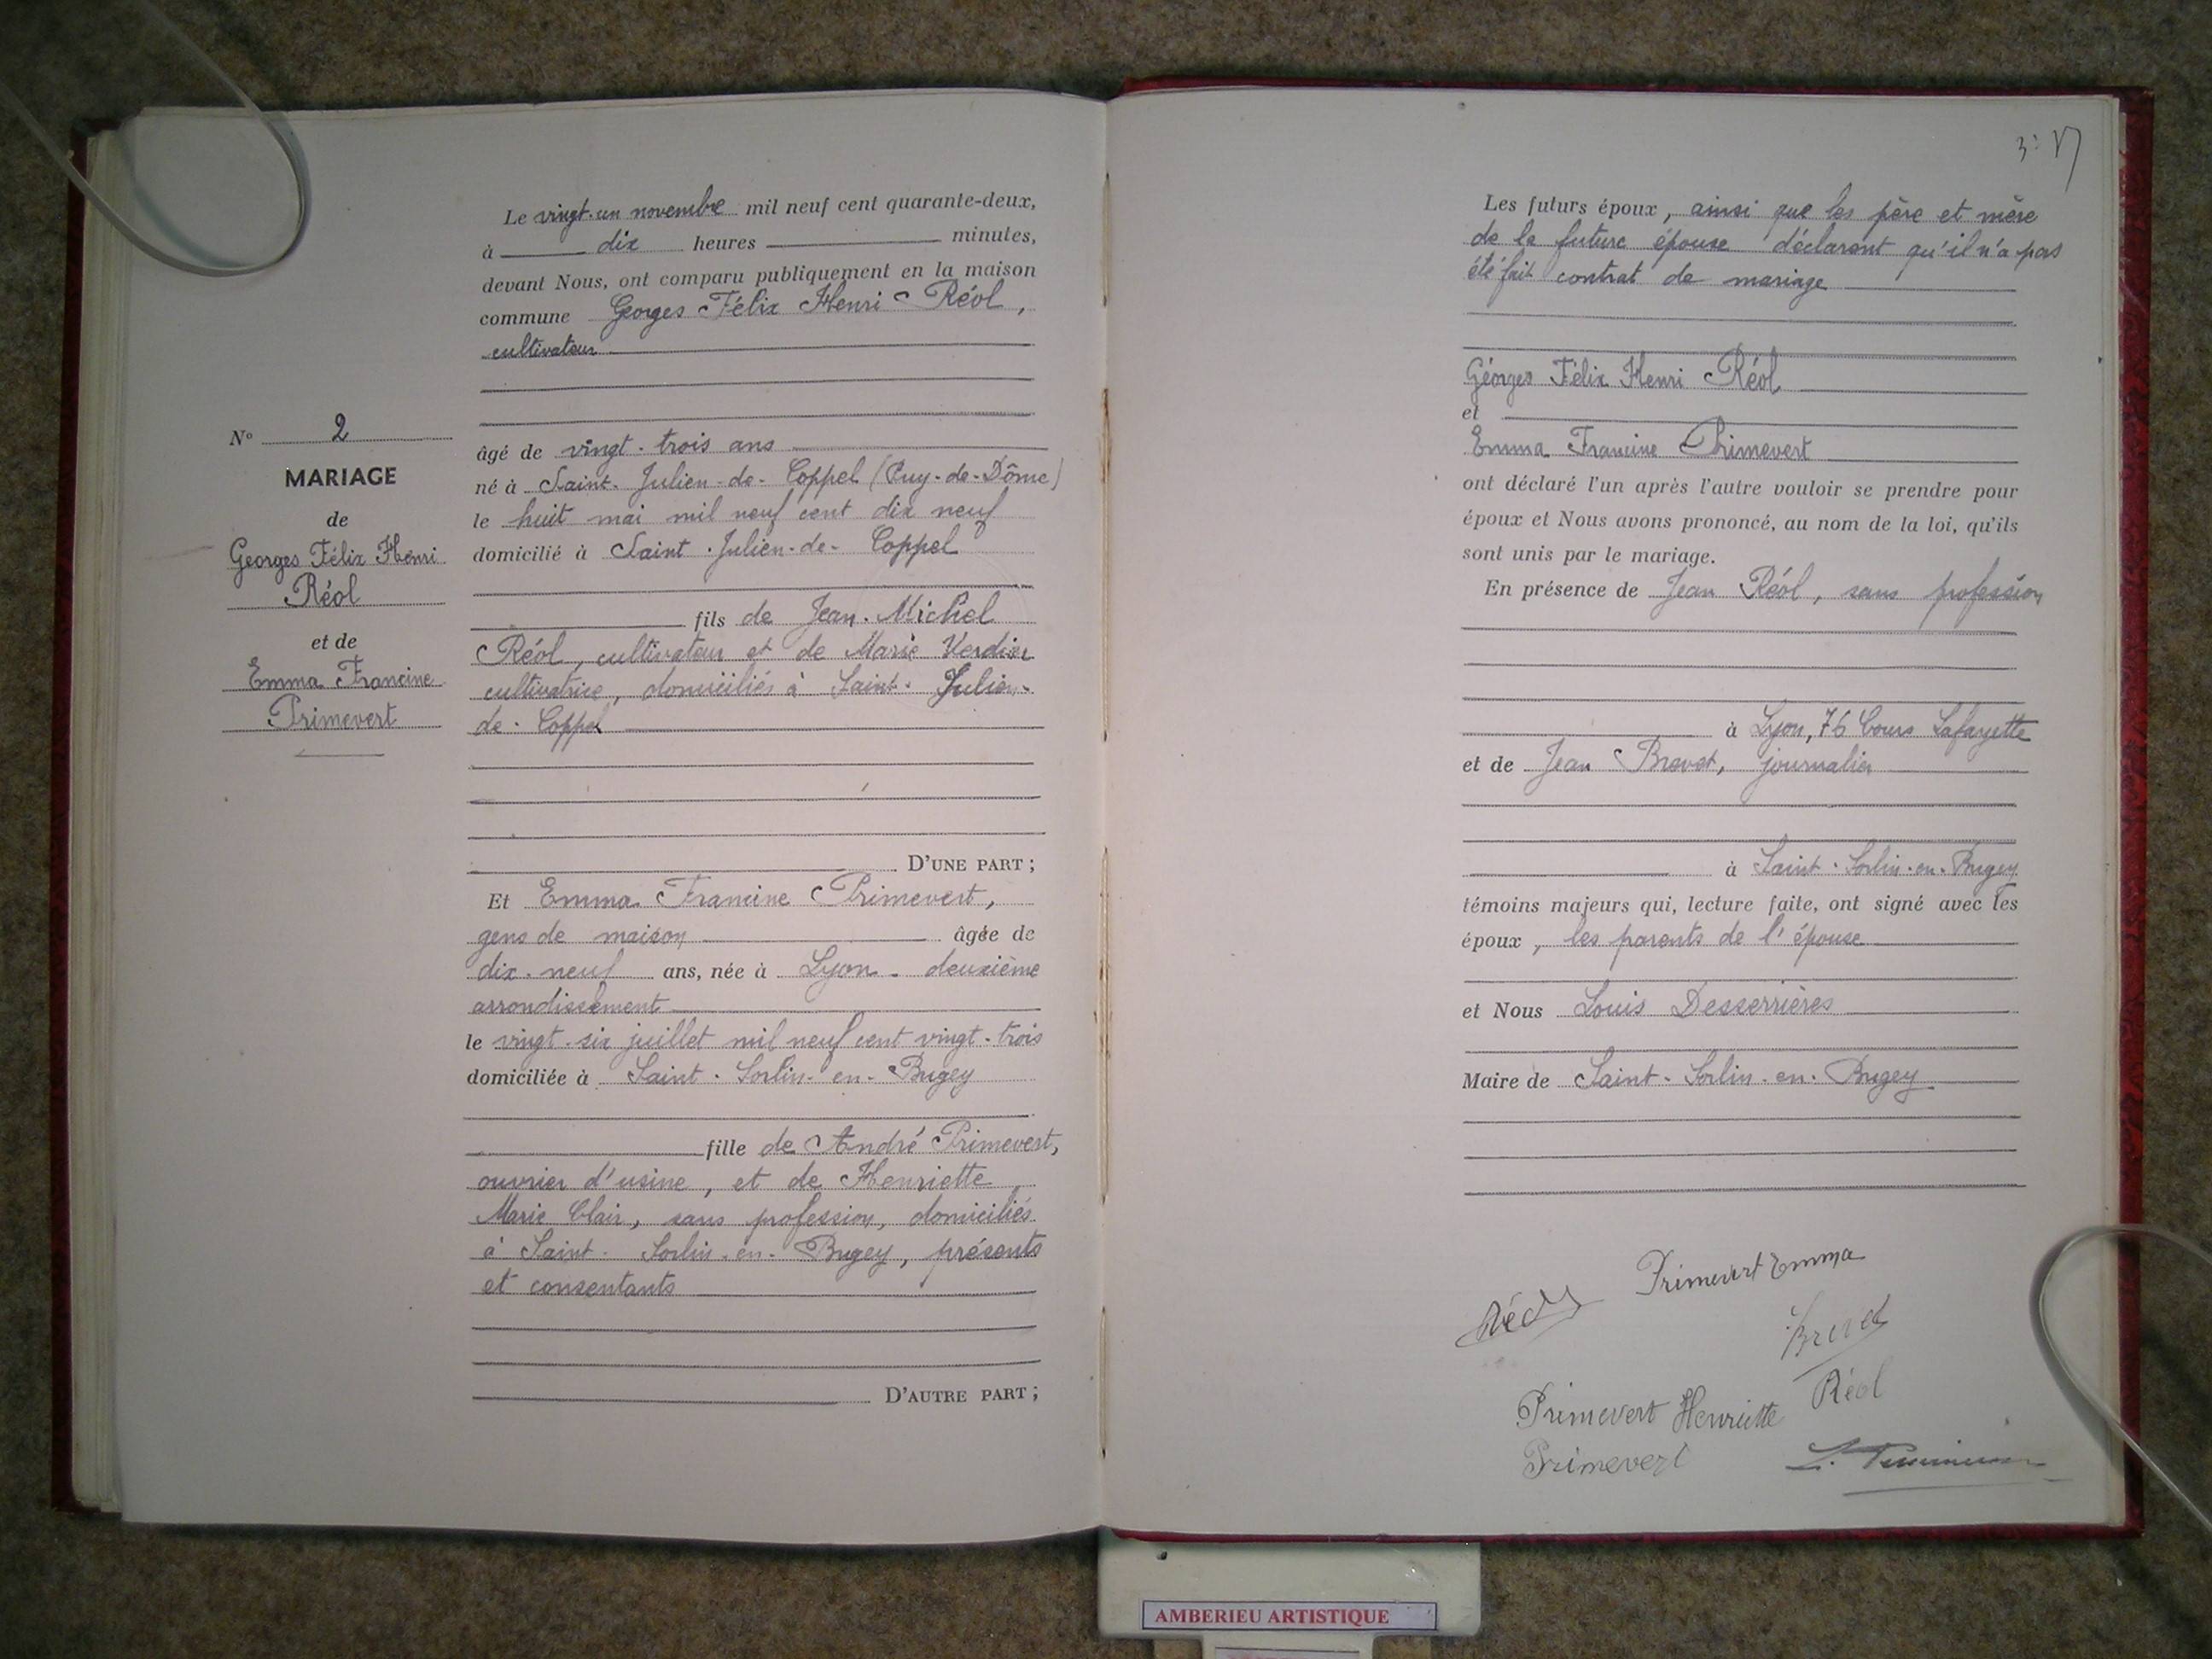 N° 2
MARIAGE
de
Georges Félix Henri
Réol
et de
Emma Francine
Primevert
Le vingt-un novembre mil neuf cent quarante-deux,
à dix heures minutes,
devant Nous, ont comparu publiquement en la maison
commune Georges Félix Henri Réol,
cultivateur
âgé de vingt-trois ans
né à Saint-Julien-de-Coppel (Puy-de-Dôme)
le huit mai mil neuf cent dix neuf
domicilié à Saint-Julien-de-Coppel
fils de Jean-Michel
Réol, cultivateur et de Marie Verdier
cultivatrice, domiciliés à Saint-Julien-
de-Coppel
D'UNE PART ;
Et Emma Francine Primevert,
gens de maison âgée de
dix-neuf ans, née à Lyon - deuxième
arrondissement
le vingt-six juillet mil neuf cent vingt-trois
domiciliée à Saint-Sorlin-en-Bugey
fille de André Primevert,
ouvrier d'usine, et de Henriette
Marie Clair, sans profession, domiciliés
à Saint-Sorlin-en-Bugey, présents
et consentants
D'AUTRE PART ;
Les futurs époux, ainsi que les père et mère
de la future épouse déclarent qu'il n'a pas
été fait contrat de mariage
Georges Félix Henri Réol
et
Emma Francine Primevert
ont déclaré l'un après l'autre vouloir se prendre pour
époux et Nous avons prononcé, au nom de la loi, qu'ils
sont unis par le mariage.
En présence de Jean Réol, sans profession
à Lyon, 76 Cours Lafayette
et de Jean Brevet, journalier
à Saint-Sorlin-en-Bugey
témoins majeurs qui, lecture faite, ont signé avec les
époux, les parents de l'épouse
et Nous Louis Desserrières
Maire de Saint-Sorlin-en-Bugey
Primevert Emma
Réol
Brevet
Réol
Primevert Henriette
Primevert
AMBERIEU ARTISTIQUE